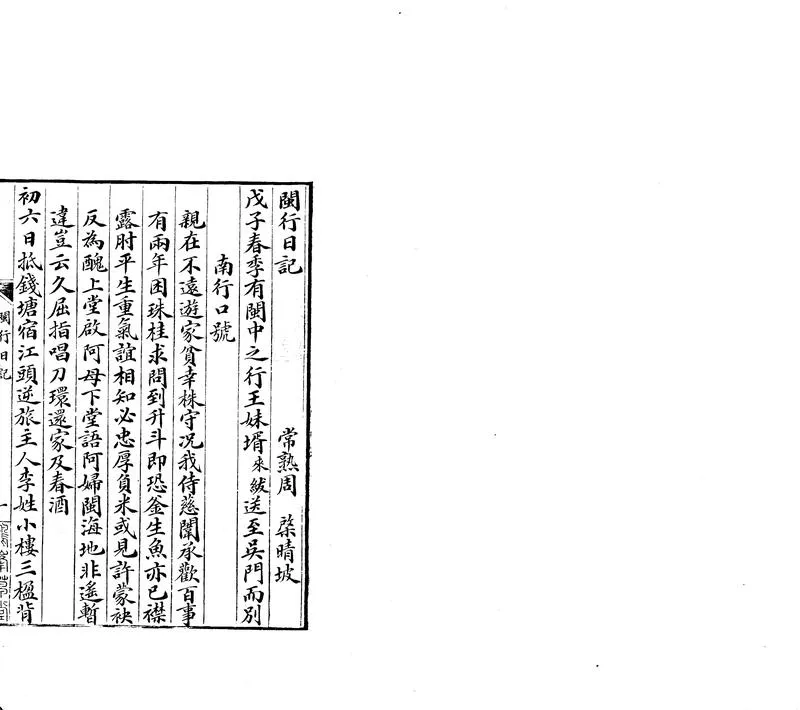 閩行日記
常熟周 棨晴坡
戊子春季有閩中之行王妹壻來紱送至吳門而別
南行口號
親在不遠遊家貧幸株守况我侍慈闈承歡百事
有兩年困珠桂求問到升斗即恐釜生魚亦已襟
露肘平生重氣誼相知必忠厚負米或見許蒙袂
反為醜上堂啟阿母下堂語阿婦閩海地非遙暫
違豈云久屈指唱刀環還家及春酒
初六日抵錢塘宿江頭逆旅主人李姓小樓三楹背
閩行日記
一